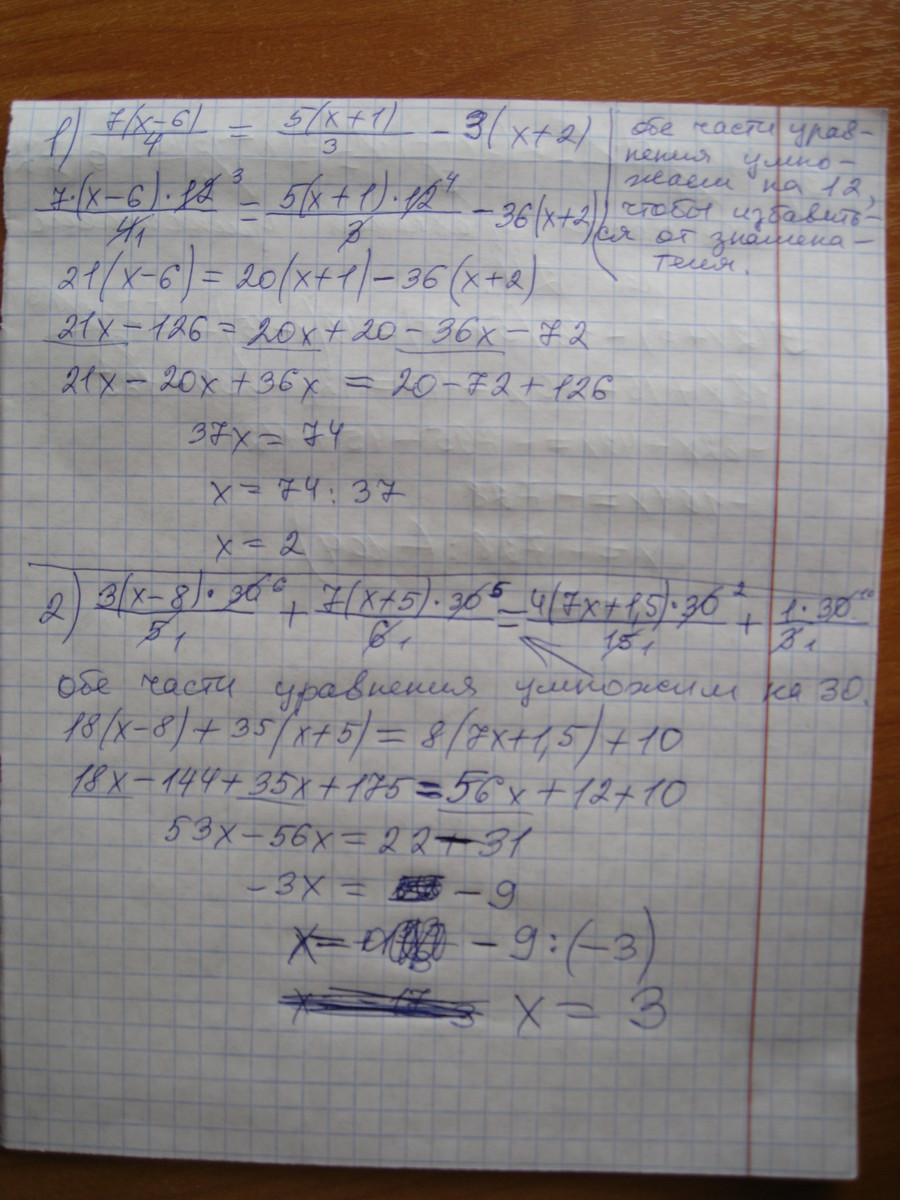 1) 7(x-6)/4 = 5(x+1)/3 - 3(x+2)
обе части урав-
нения умно-
жаем на 12,
чтобы избавить-
ся от знамена-
теля.
7·(x-6)·12 3/4 1 = 5(x+1)·12 4/3 - 36(x+2)
21(x-6) = 20(x+1) - 36(x+2)
21x - 126 = 20x + 20 - 36x - 72
21x - 20x + 36x = 20 - 72 + 126
37x = 74
x = 74 : 37
x = 2
2) 3(x-8)·30 6/5 1 + 7(x+5)·30 5/6 1 = 4(7x+1,5)·30 2/15 1 + 1·30 10/3 1
обе части уравнения умножим на 30.
18(x-8) + 35(x+5) = 8(7x+1,5) + 10
18x - 144 + 35x + 175 = 56x + 12 + 10
53x - 56x = 22 - 31
-3x = -9
x = -9 : (-3)
x = 3